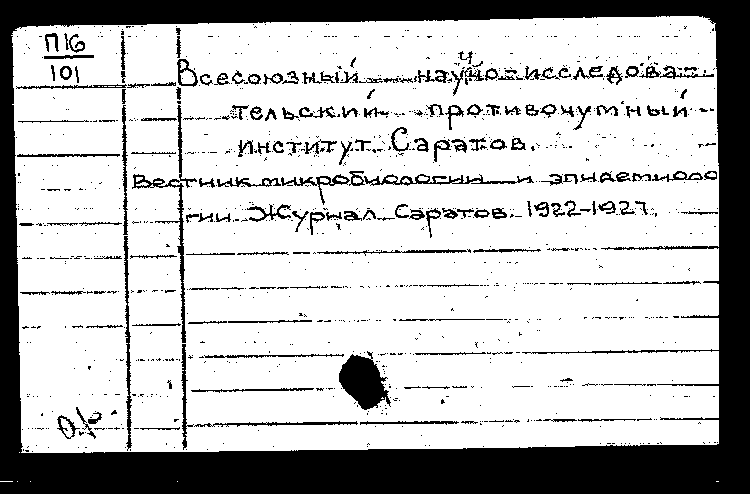 П16
101
Всесоюзный научно-исследова-
тельский противочумный
институт. Саратов.
Вестник микробиологии и эпидемиоло
гии Журнал Саратов. 1922-1927.